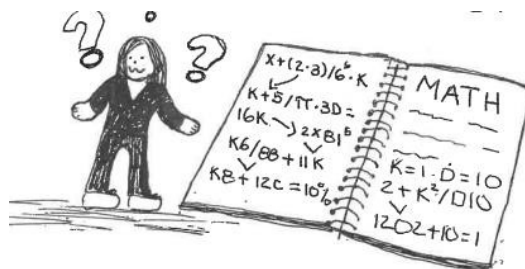 ? ?
X+(2·3)/6⁵·K
K+5/π·3D=
16K → 2×81⁵
K6/88+11K
K8+12C=10%
MATH
K=1·D=10
2+K²/□10
12O2+10=1